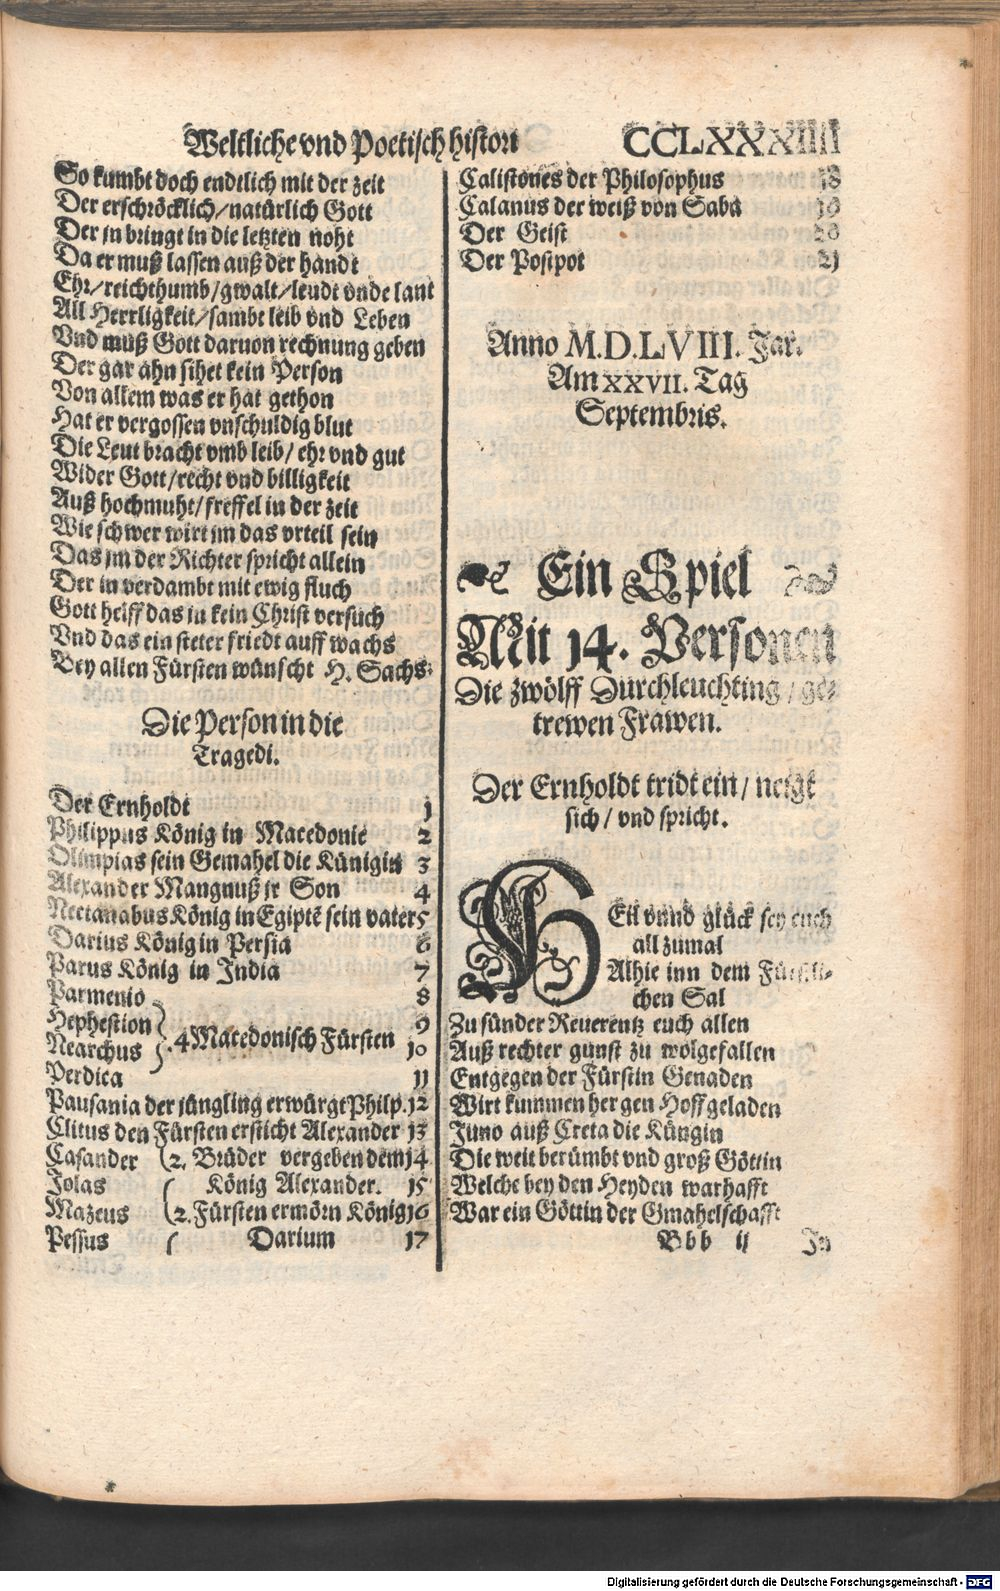 Weltliche vnd Poetisch histori CCLXXXIIII
So kumbt doch endtlich mit der zeit
Der erschröcklich/natürlich Gott
Der jn bringt in die letzten noht
Da er muß lassen auß der handt
Ehr/reichthumb/gwalt/leudt vnde lant
All Herrligkeit/sambt leib vnd Leben
Vnd muß Gott daruon rechnung geben
Der gar ahn sihet kein Person
Von allem was er hat gethon
Hat er vergossen vnschuldig blut
Die Leut bracht vmb leib/ ehr vnd gut
Wider Gott/recht vnd billigkeit
Auß hochmuht/freffel in der zeit
Wie schwer wirt jm das vrteil sein
Das jm der Richter spricht allein
Der in verdambt mit ewig fluch
Gott helff das in kein Christ versuch
Vnd das ein steter friedt auff wachs
Bey allen Fürsten wünscht H. Sachs.
Die Person in die
Tragedi.
Der Ernholdt 1
Philippus König in Macedonie 2
Olimpias sein Gemahel die Künigin 3
Alexander Mangnuß jr Son 4
Nectanabus König in Egiptē sein vater 5
Darius König in Persia 6
Parus König in India 7
Parmenio 8
Hephestion 9
.4 Macedonisch Fürsten
Nearchus 10
Perdica 11
Pausania der jüngling erwürgt Philp. 12
Clitus den Fürsten ersticht Alexander 13
Casander 2. Brüder vergeben dem 14
Jolas König Alexander. 15
Mazeus 2. Fürsten ermörn König 16
Pessus Darium 17
Calistones der Philosophus 18
Calanus der weiß von Saba 19
Der Geist 20
Der Postpot 21
Anno M.D.LVIII. Jar.
Am XXVII. Tag
Septembris.
Ein Spiel
Mit 14. Personen
Die zwölff Durchleuchting / ge-
trewen Frawen.
Der Ernholdt tridt ein/ neigt
sich/ vnd spricht.
HEil vnnd glück sey euch
all zumal
Alhie inn dem Fürstli-
chen Sal
Zu sünder Reuerentz euch allen
Auß rechter gunst zu wolgefallen
Entgegen der Fürstin Genaden
Wirt kummen her gen Hoff geladen
Juno auß Creta die Küngin
Die weit berümbt vnd groß Göttin
Welche bey den Heyden warhafft
War ein Göttin der Gmahelschafft
Bbb ij Jn
Digitalisierung gefördert durch die Deutsche Forschungsgemeinschaft - DFG